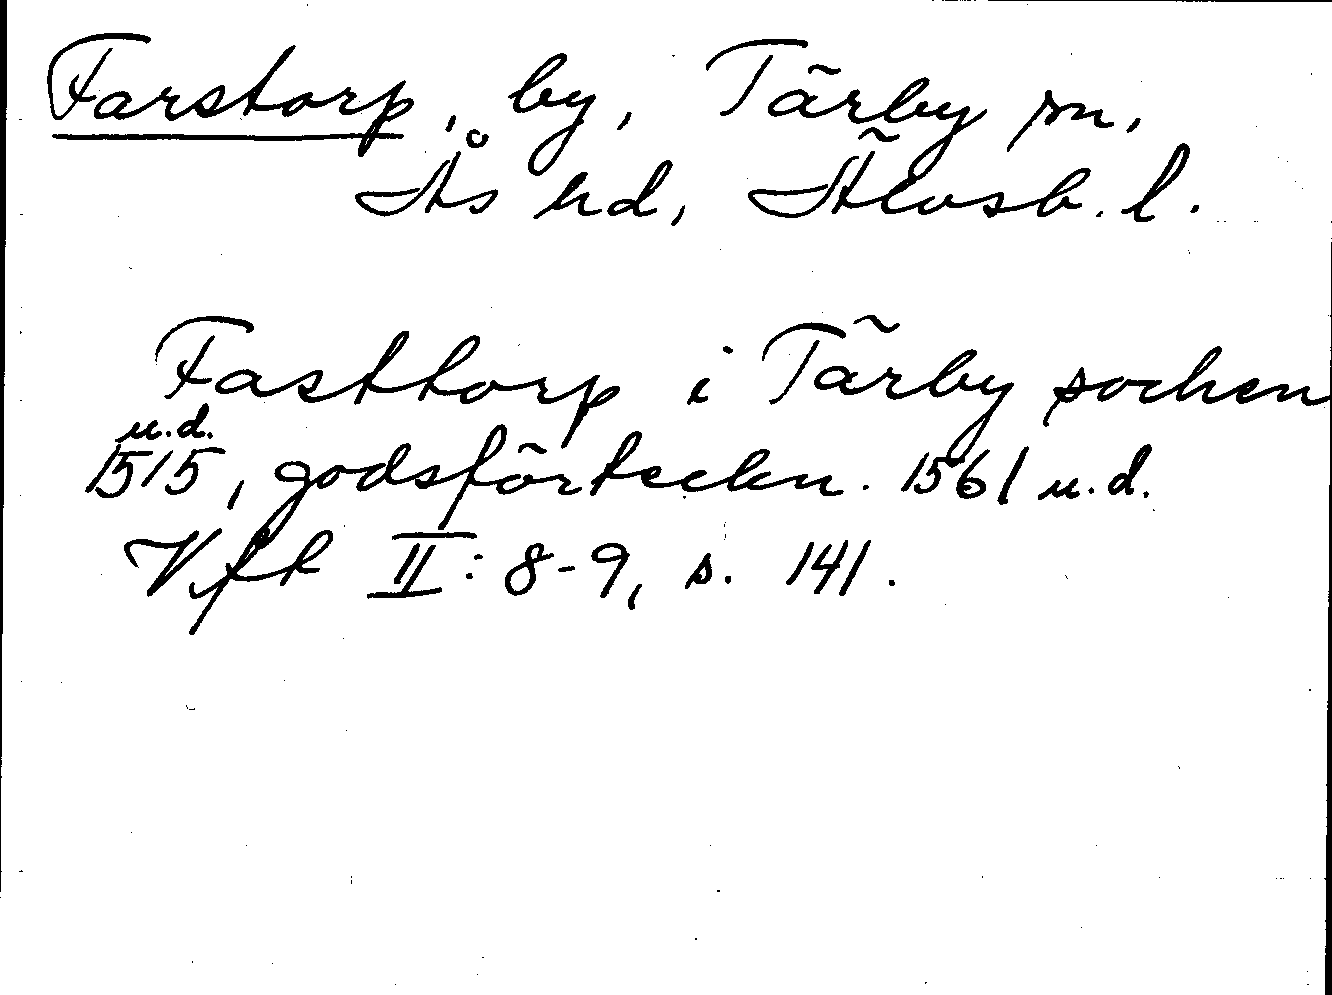 Farstorp, by, Tärby sn,
Ås hd, Älvsb. l.
Fasttorp i Tärby sochen
u.d.
1515, godsförteckn. 1561 u.d.
Vfk II: 8-9, s. 141.